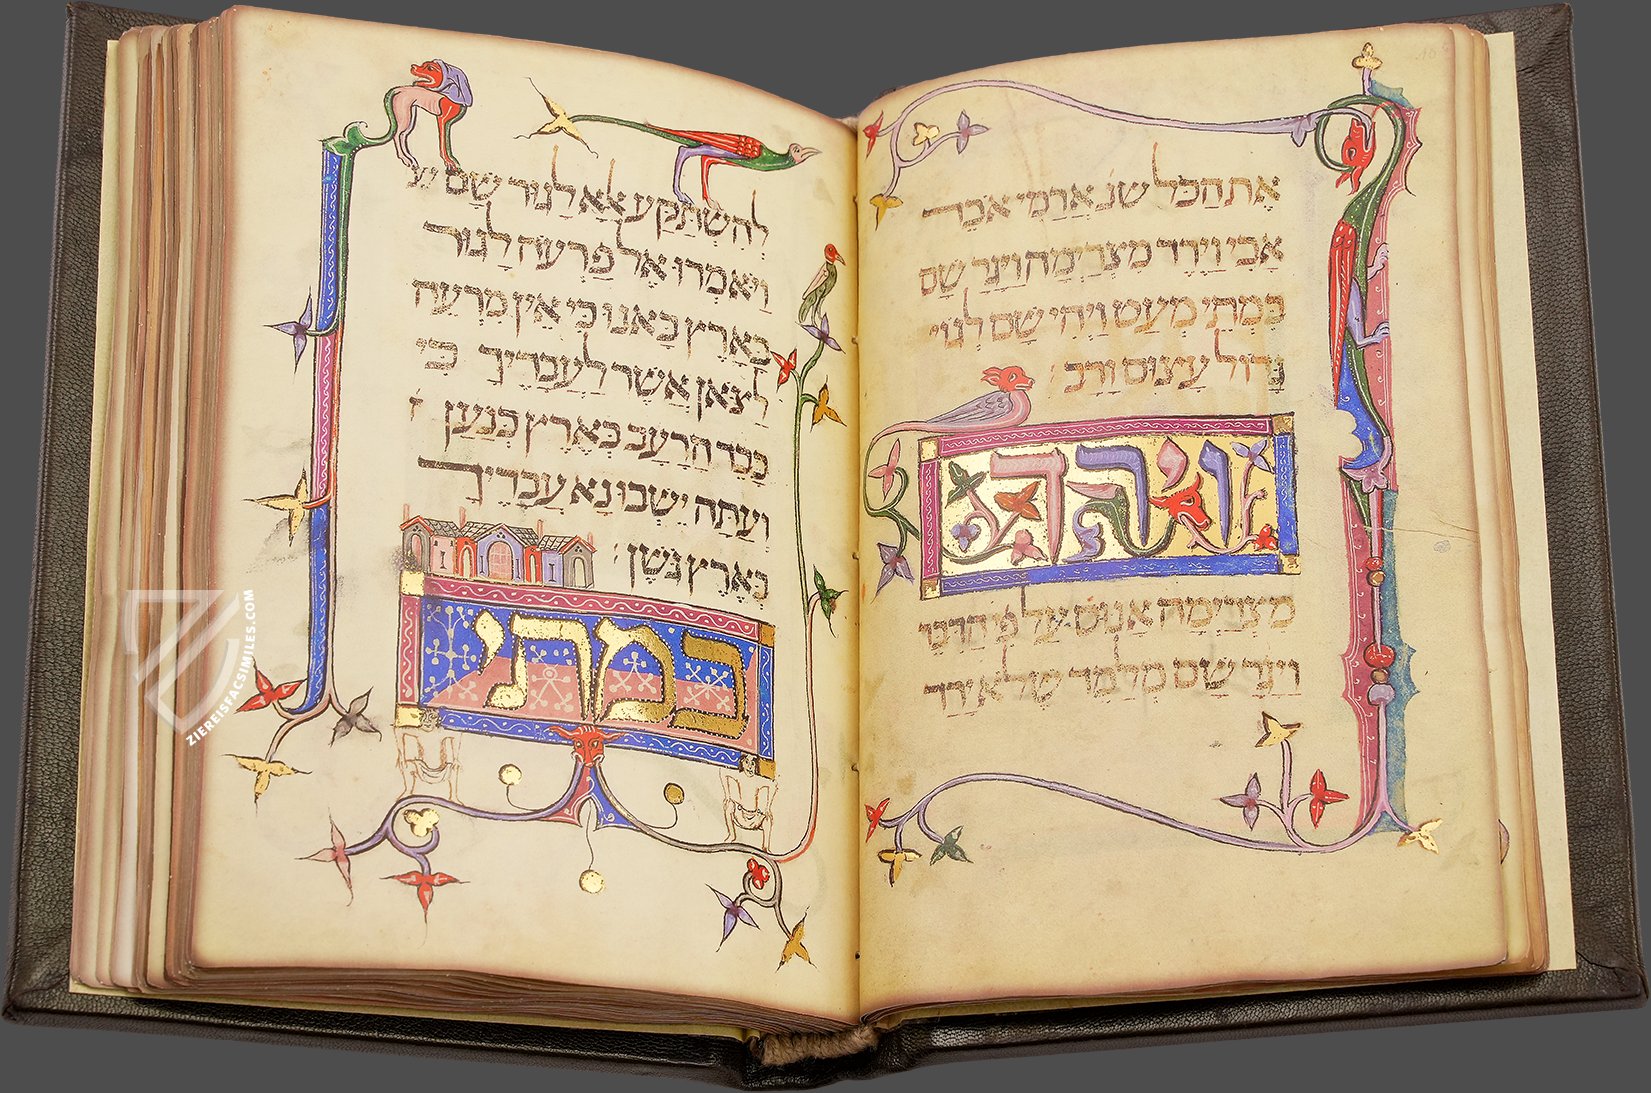 את הכל שנ ארמי אבד
אבי וירד מצרימה ויגר שם
במתי מעט ויהי שם לגוי
גדול עצום ורב :
וירד
מצרימה אנוס על פי הדבר
ויגר שם מלמד שלא ירד
להשתקע אלא לגור שם
ויאמרו אל פרעה לגור
בארץ באנו כי אין מרעה
לצאן אשר לעבדיך כי
כבד הרעב בארץ כנען
ועתה ישבו נא עבדיך
בארץ גשן :
במתי
ZIEREISFACSIMILES.COM